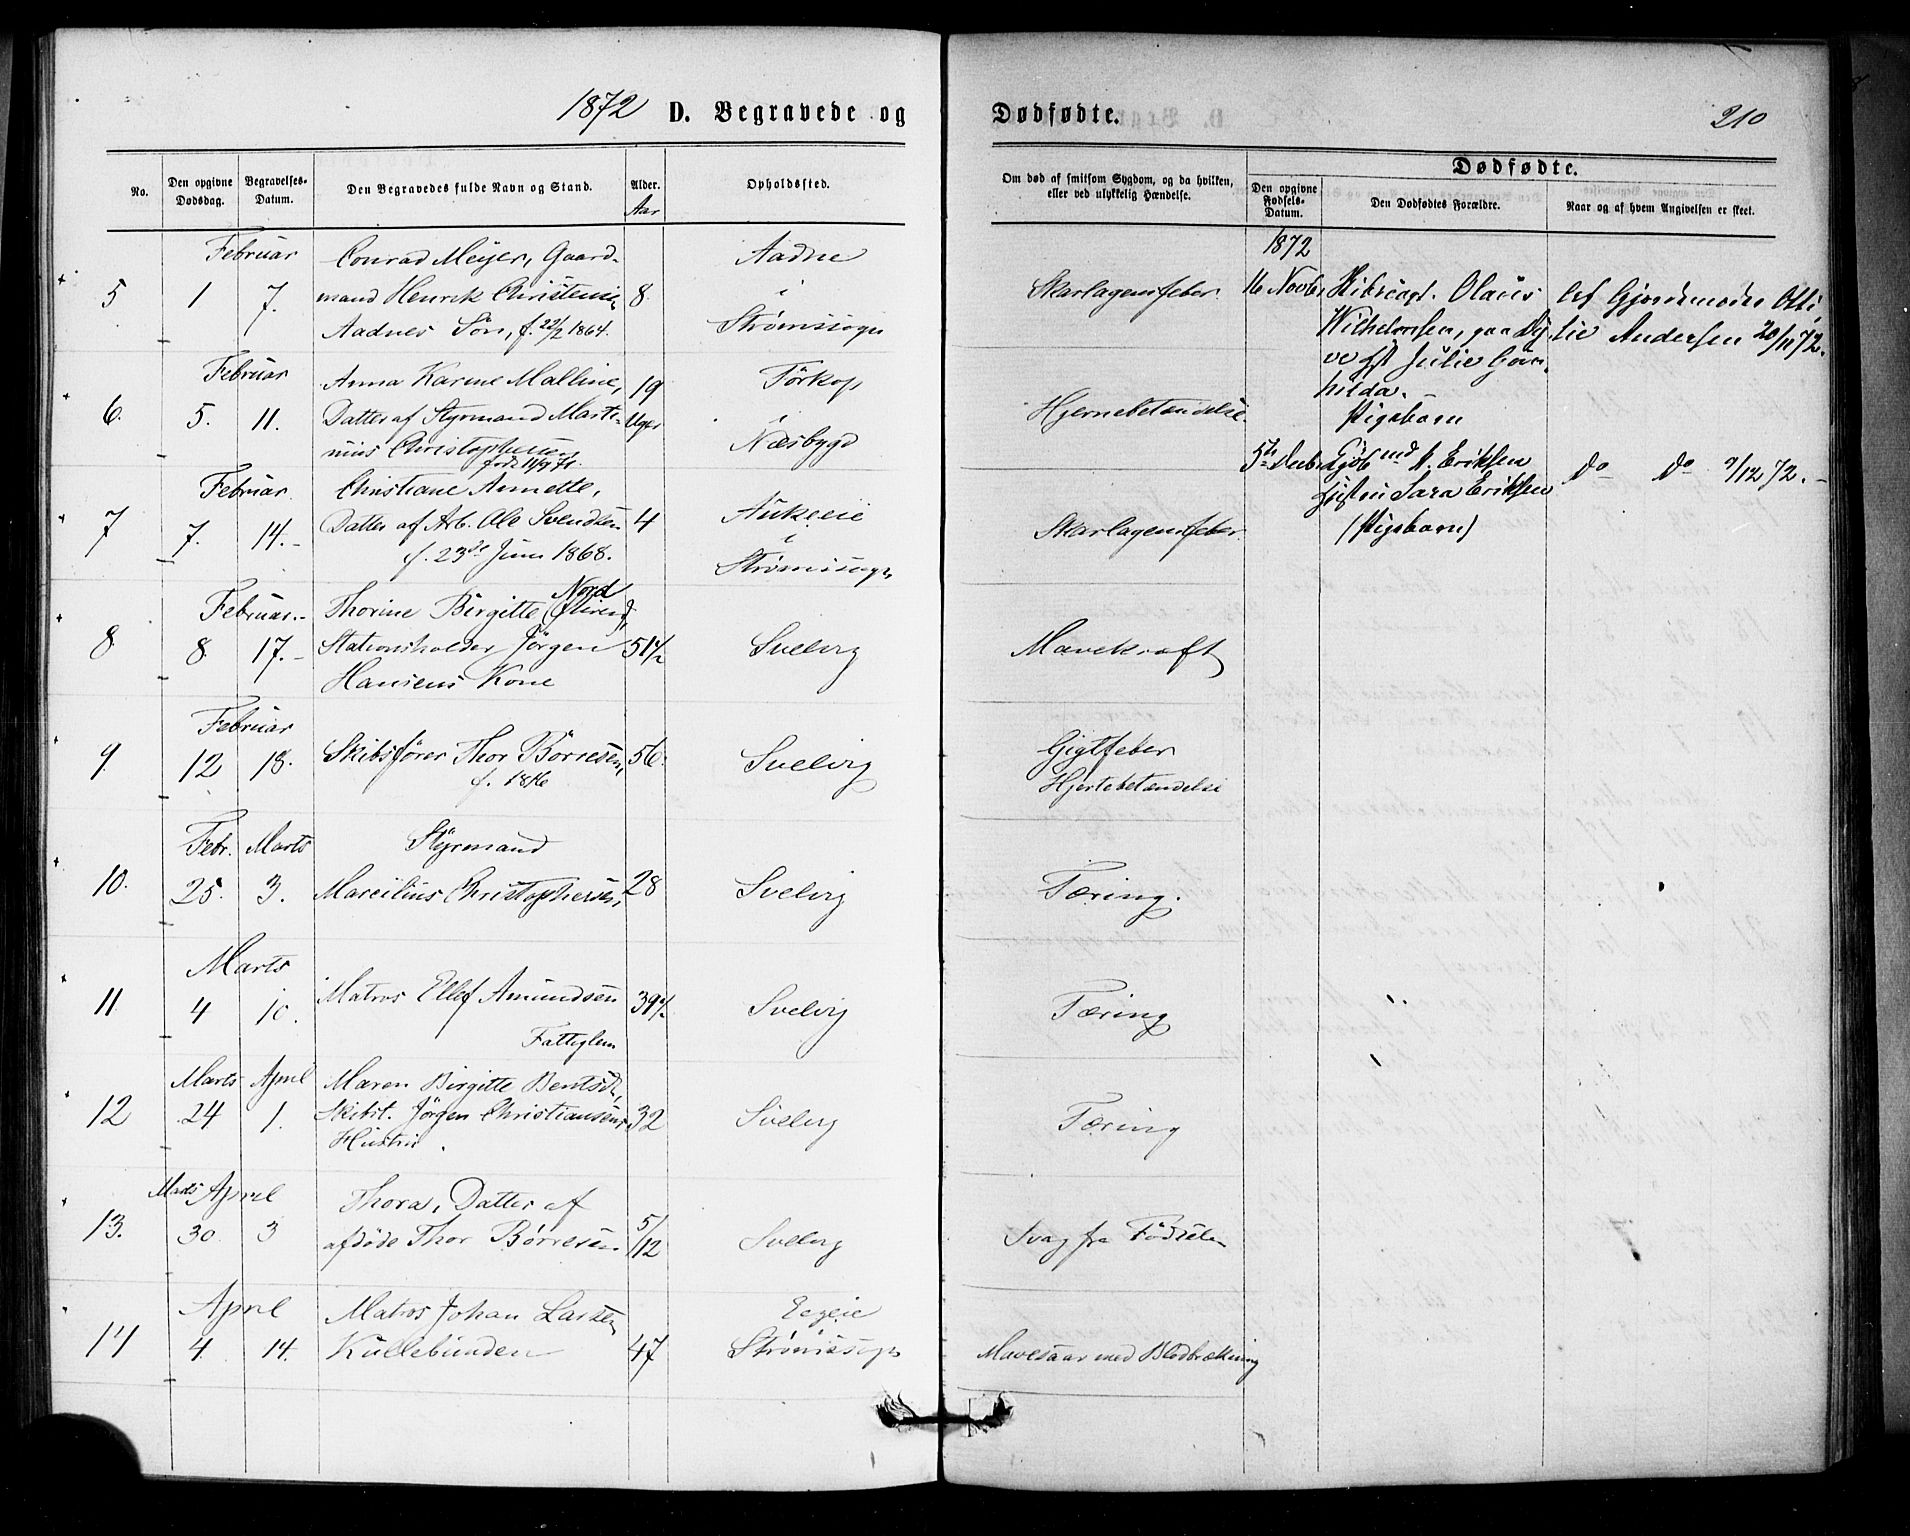 1872 D. Begravede og Dødfødte. 210
No.
Den opgivne Dødsdag.
Begravelses-Datum.
Den Begravedes fulde Navn og Stand.
Alder.
Aar
Opholdssted.
Om død af smitsom Sygdom, og da hvilken,
eller ved ulykkelig Hændelse.
Dødfødte.
Den opgivne Fødsels-Datum.
Den Dødfødtes Forældre.
Naar og af hvem Angivelsen er skeet.
Februar Conrad Meyer, Gaard- Aadne
5 1 7. mand Henrik Christensen 8. i Skarlagensfeber
Aadnes Søn, f. 22/2 1864. Strømssogn
Februar Anna Karine Malline, 19 Tørkop
6. 5. 11. Datter af Styrmand Marti- Uger i Hjernebetændelse
nius Christophersen Næsbygd
født 11/9 71.
Februar Christiane Annette,
7 7. 14.- Datter af Arb. Ole Svendsen 4 i Skarlagensfeber
f. 23de Juni 1868. Strømssogn
Februar.- Thorine Birgitte Nord
8. 8. 17.- Stationsholder Jörgen 51 1/2 Svelvig Mavekræft
Hansens Kone
Februar
9. 12 18. Skibsfører Thor Börresen, 56. Svelvig Gigtfeber
f. 1816 Hjertebetændelse
Febr. Marts Styrmand
10. 25. 3. Marcilius Christophersen, 28 Svelvig Tæring.
Marts
11 4 10. Matros Ellef Amundsen 39 1/2 Svelvig Tæring
Fattiglem
Marts April Maren Birgitte Bentsdt,
12 24 1. Skibst. Jörgen Christiansens 32 Svelvig Tæring
Hustru.
Marts April Thora, Datter af
13. 30. 3 afdöde Thor Börresen 5/12 Svelvig Svag fra Födselen
April Matros Johan Larsen
14 4. 14. Kullebunden 47 Strømssogn Mavesaar med Blodbrækning
1872
16 Novbr Olaus Af Gjordemoder Otti-
Wilhelmsen, lie Andersen 20/11 72.
Julie Gun-
hilda.
Pigebarn
5te Decbr Eriksen do do 9/12 72.-
Sara Eriksen
(Pigebarn)